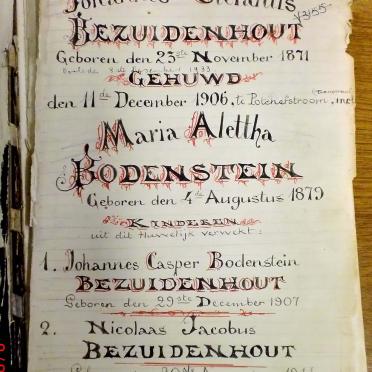 Johannes Stefanus
BEZUIDENHOUT
Geboren den 23ste November 1871
GEHUWD
den 11de December 1906, te Potchefstroom, met
Maria Alettha
BODENSTEIN
Geboren den 4de Augustus 1879
KINDEREN
uit dit Huwelijk verwekt:
1. Johannes Casper Bodenstein
BEZUIDENHOUT
Geboren den 29ste December 1907
2. Nicolaas Jacobus
BEZUIDENHOUT